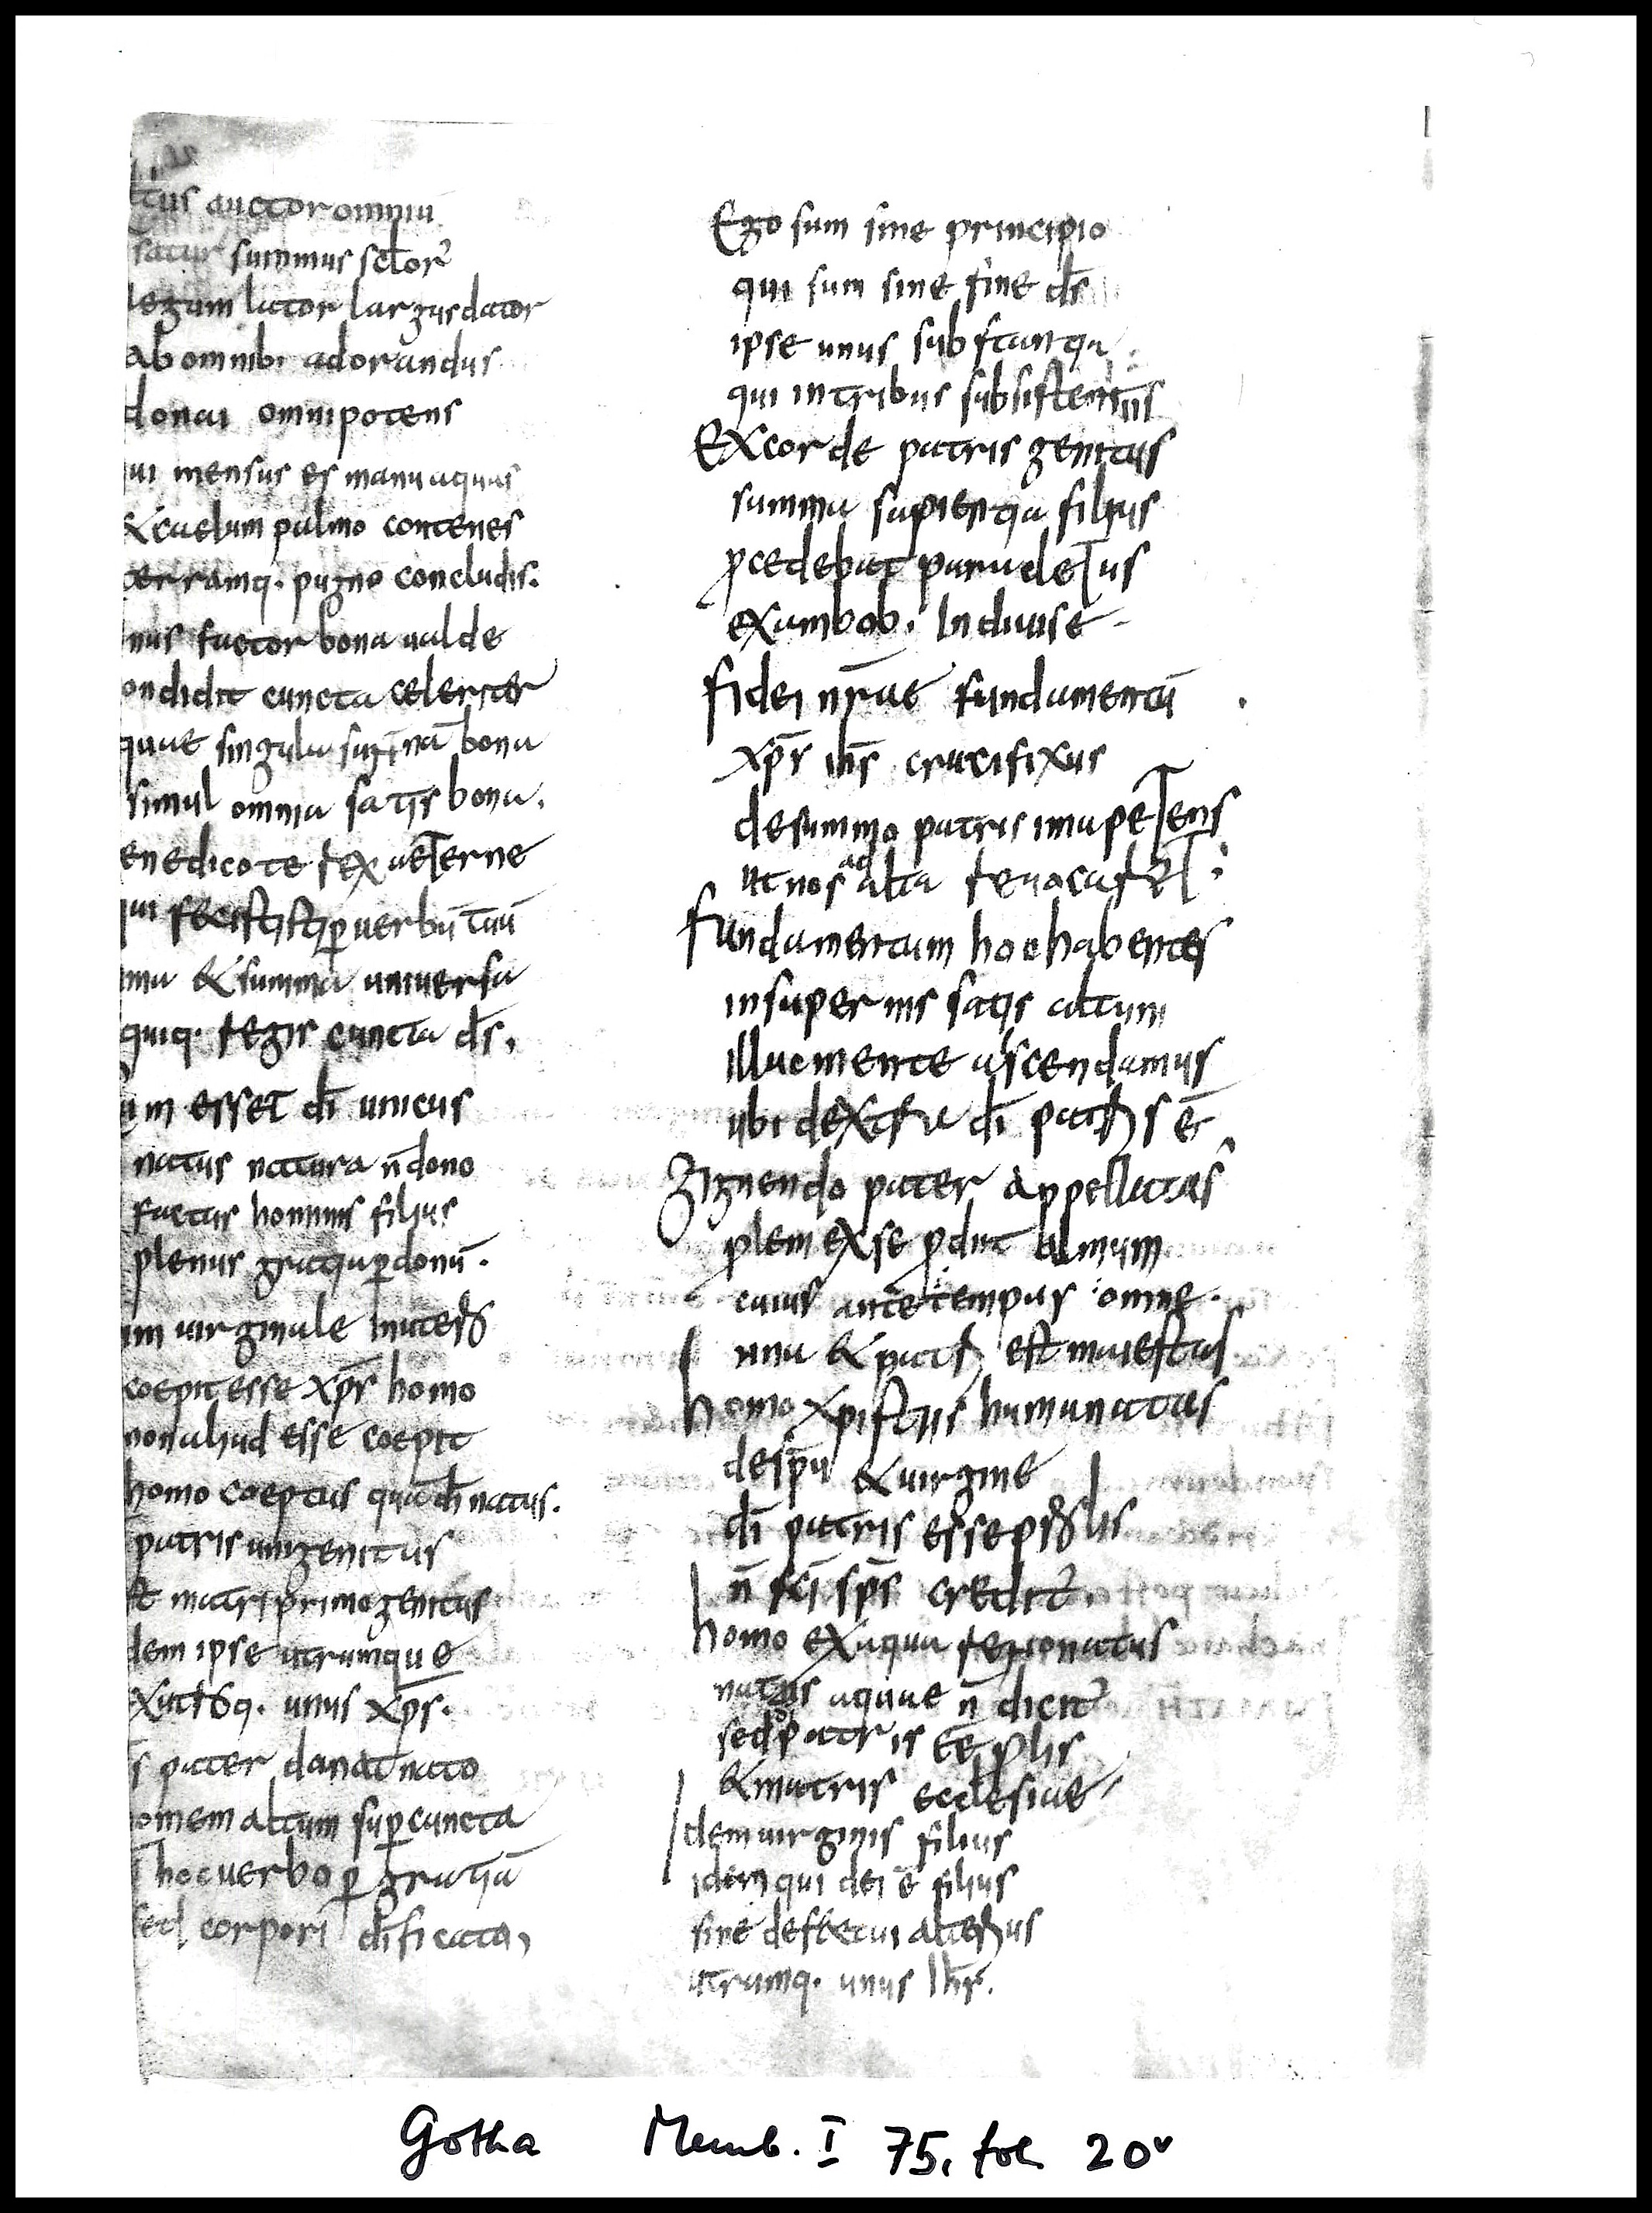 tus auctor omniu
satur summus sclor
legum lator largus dator
ab omnib; adorandus
donai omnipotens
ui mensus es manu aquas
& caelum palmo contenes
terramq. pugno concludis.
nus factor bona ualde
ondidit cuncta celeriter
quae singula sunt nā bona
simul omnia satis bona.
enedico te rex aeterne
qui fecisti per uerbū tuū
ima & summa uniuersa
quiq. regis cuncta d̄s,
um esset d̄i unicus
natus natura n̄ dono
factus hominis filius
plenus gratia per donū.
im uirginale
coepit esse xp̄s homo
non aliud esse coepit
homo coeptus quā d̄i natus.
patris unigenitus
& matri primogenitus
dem ipse utrumque
q. unus xp̄s.
pater donat nato
omem altum sup cuncta
hoc uerbo p gratiā
sed corpori dificata,
Ego sum sine principio
qui sum sine fine d̄s
ipse unus substantia
qui in tribus subsistentiis
Ex corde patris genitus
summa sapientia filius
pcedebat paracletus
ex ambob. indiuise
fidei nr̄ae fundamentū
xp̄s ih̄s crucifixus
de summo patris ima petens
ut nos ad alta reuocaret:
fundamentum hoc habentes
insuper nis satis altum
illuc mente ascendamus
ubi dextra d̄i patris ē
gignendo pater appellatus
plem ex se pdit almum
cuius ante tempus omne.
una & patris est maiestas
homo xpistus humanatus
de sp̄u & uirgine
d̄i patris esse
n̄ sc̄i sp̄s credit.
homo ex aqua regionatus
natus aquae n̄ dicit
sed patris ēē plis
& matris ecclesiae
Idem uirginis filius
idem qui dei ē filius
sine defectu alterius
utrumq. unus ih̄s.
Gotha Memb. I 75, fol. 20v